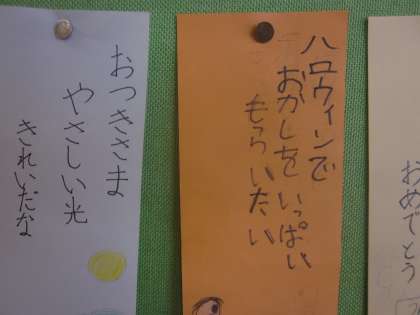 おつきさま
やさしい光
きれいだな
ハロウィンで
おかしをいっぱい
もらいたい
おめでとう